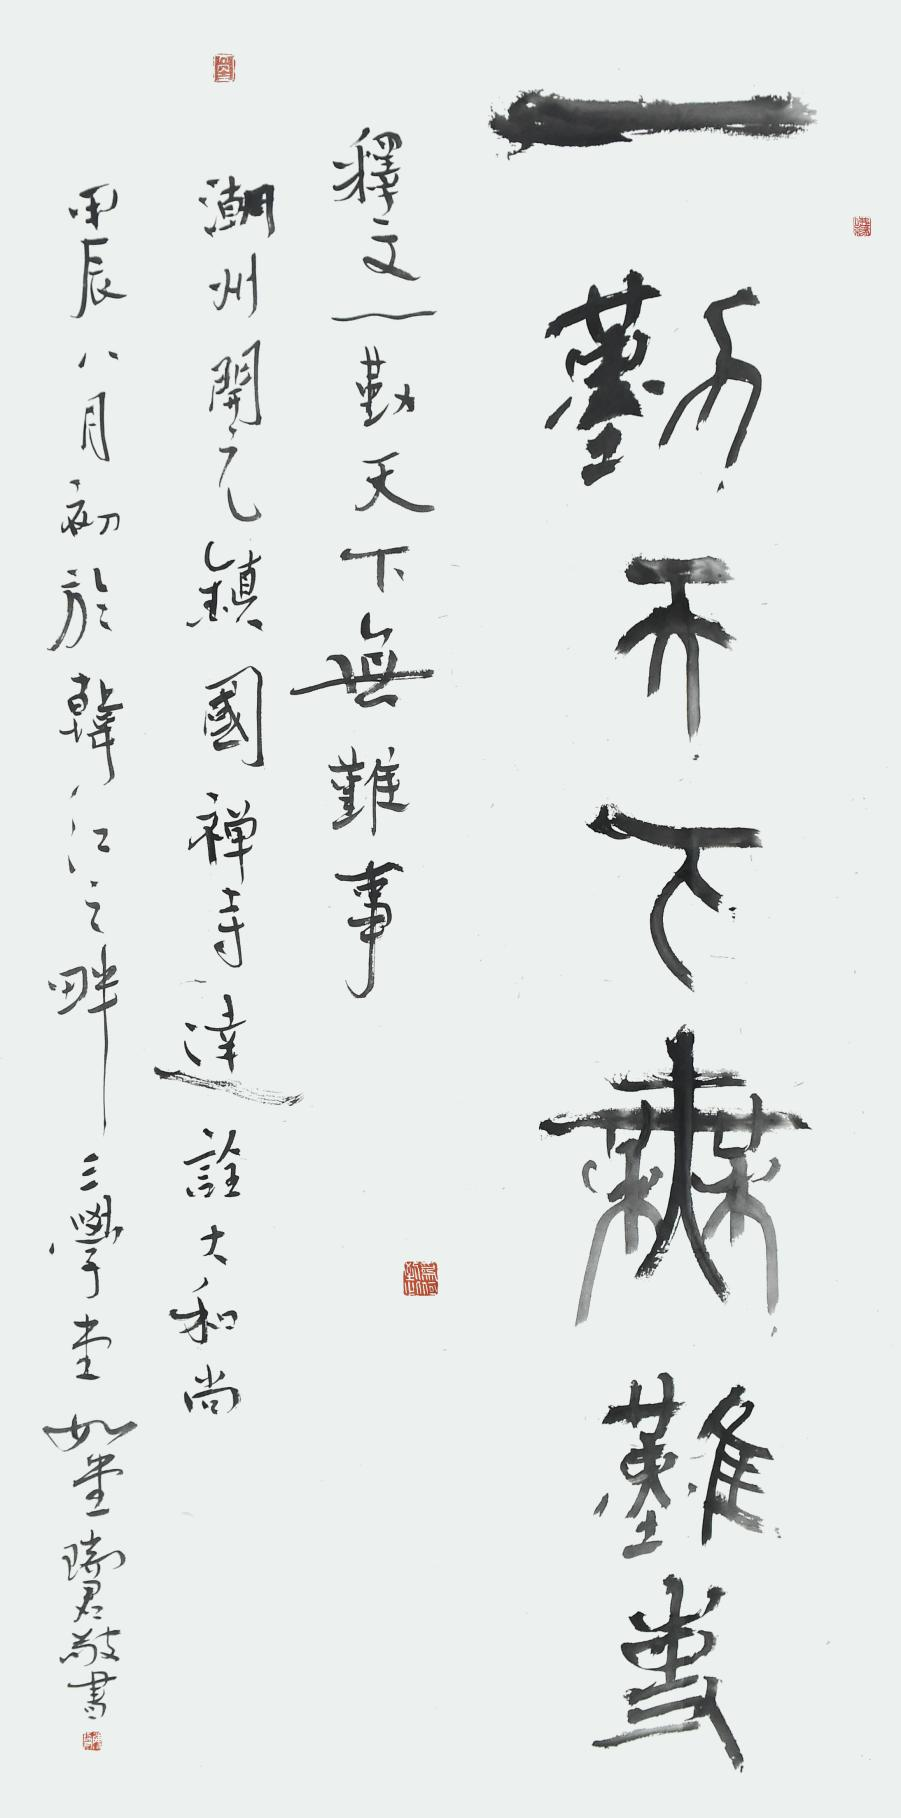 一勤天下無難事
釋文一勤天下無難事
潮州開元鎮國禪寺達詮大和尚
甲辰八月初於韓江之畔三學堂如堂瑞君敬書